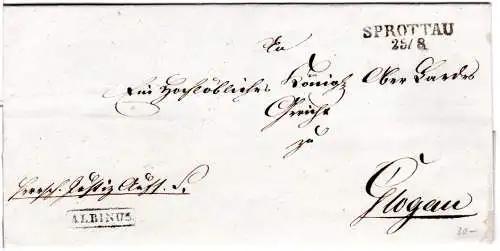 SPROTTAU
29/8
An
Ein Hochlöbliches Königl Ober Landes
Gericht
zu
Glogau
Herrsch. Justiz Amt. S.
ALBINUS.
30-